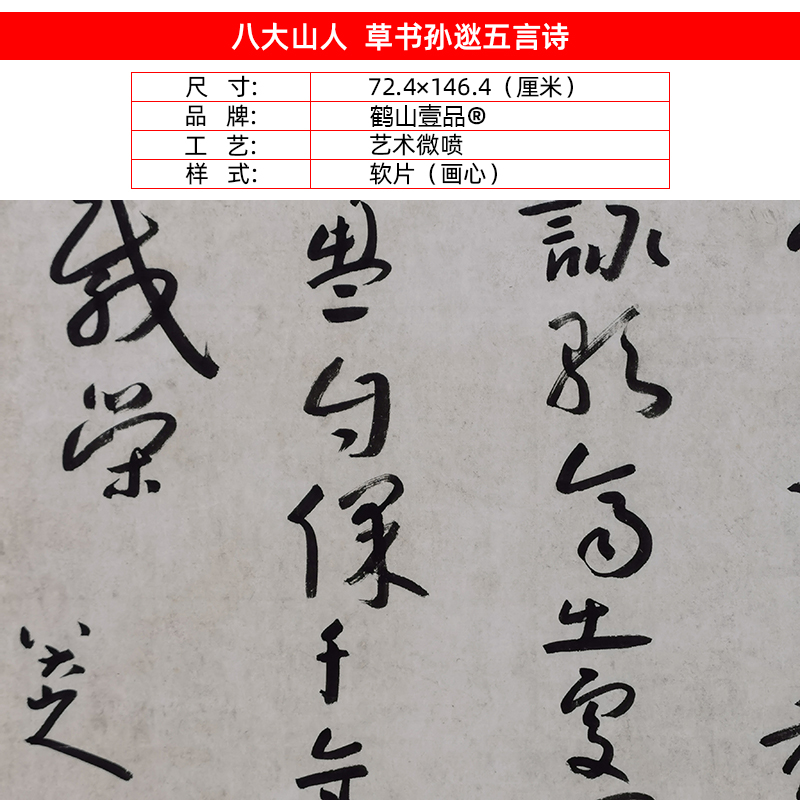 八大山人 草书孙逖五言诗
尺 寸: 72.4×146.4（厘米）
品 牌: 鹤山壹品®
工 艺: 艺术微喷
样 式: 软片（画心）
詠歌
保千年
載榮
八大山人